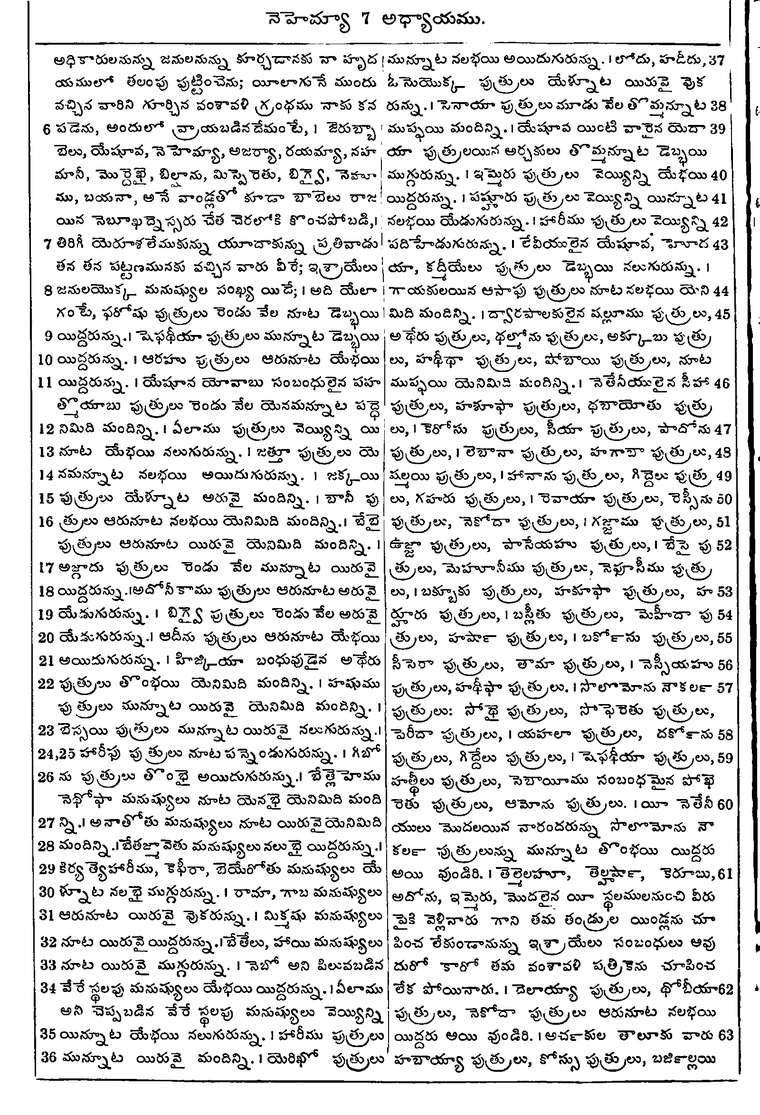 నెహెమ్యా 7 అధ్యాయము.
అధికారులనున్ను జనులనున్ను కూర్చడానకు నా హృద
యములో తలంపు పుట్టించెను; యీలాగుననే ముందు
వచ్చిన వారిని గూర్చిన వంశావళి గ్రంథము నాకు కన
6 పడెను, అందులో వ్రాయబడినదేమంటే, । జెరుబ్బా
బెలు, యేషూవ, నెహెమ్యా, అజర్యా, రయమ్యా, నహ
మానీ, మొర్దెఖై, బిల్షాను, మిస్పెరెతు, బిగ్వై, నెహూ
ము, బయనా, అనే వాండ్లతో కూడా బాబేలు రాజ
యిన నెబూఖద్నెస్సరు చేత చెరలోకి కొంచపోబడి, ।
7 తిరిగీ యెరూశలేముకున్ను యూదాకున్ను ప్రతివాడు
తన తన పట్టణమునకు వచ్చిన వారు వీరే; ఇశ్రాయేలు
8 జనులయొక్క మనుష్యుల సంఖ్య యిదే; । అది యేలా
గంటే, ఫరోషు పుత్రులు రెండు వేల నూట డెబ్భయి
9 యిద్దరున్ను. । షెఫథీయా పుత్రులు మున్నూట డెబ్భయి
10 యిద్దరున్ను. । ఆరహు పుత్రులు ఆరునూట యేభయి
11 యిద్దరున్ను. । యేషూవ యోవాబు సంబంధులైన పహ
త్మొయాబు పుత్రులు రెండు వేల యెనమన్నూట పద్ధె
12 నిమిది మందిన్ని. । ఏలాము పుత్రులు వెయ్యిన్ని యి
13 నూట యేభయి నలుగురున్ను. । జత్తూ పుత్రులు యె
14 నమన్నూట నలభయి అయిదుగురున్ను. । జక్కయి
15 పుత్రులు యేళ్నూట అరువై మందిన్ని. । బానీ పు
16 త్రులు ఆరునూట నలభయి యెనిమిది మందిన్ని. । బేబై
పుత్రులు ఆరునూట యిరువై యెనిమిది మందిన్ని. ।
17 అజ్గాదు పుత్రులు రెండు వేల మున్నూట యిరువై
18 యిద్దరున్ను. । అదోనీకాము పుత్రులు ఆరునూట అరువై
19 యేడుగురున్ను. । బిగ్వై పుత్రులు రెండు వేల అరువై
20 యేడుగురున్ను. । ఆదీను పుత్రులు ఆరునూట యేభయి
21 అయిదుగురున్ను. । హిజ్కియా బంధువుడైన అథేరు
22 పుత్రులు తొంభయి యెనిమిది మందిన్ని. । హషుము
పుత్రులు మున్నూట యిరువై యెనిమిది మందిన్ని. ।
23 బెస్సయి పుత్రులు మున్నూట యిరువై నలుగురున్ను. ।
24,25 హారీఫు పుత్రులు నూట పన్నెండుగురున్ను. । గిబో
26 ను పుత్రులు తొంభై అయిదుగురున్ను. । బేత్లెహేము
నెథోఫా మనుష్యులు నూట యెనభై యెనిమిది మంది
27 న్ని. । అనాతోతు మనుష్యులు నూట యిరువైయెనిమిది
28 మందిన్ని. । బేతజ్మావెతు మనుష్యులు నలుభై యిద్దరున్ను. ।
29 కిర్యత్యెహారీము, కెఫీరా, బెయేరోతు మనుష్యులు యే
30 ళ్నూట నలభై ముగ్గురున్ను. । రామా, గాబ మనుష్యులు
31 ఆరునూట యిరువై వుకరున్ను. । మిక్మషు మనుష్యులు
32 నూట యిరువై యిద్దరున్ను. । బేతేలు, హాయి మనుష్యులు
33 నూట యిరువై ముగ్గురున్ను. । నెబో అని పిలువబడిన
34 వేరే స్థలపు మనుష్యులు యేభయి యిద్దరున్ను. । ఏలాము
అని చెప్పబడిన వేరే స్థలపు మనుష్యులు వెయ్యిన్ని
35 యిన్నూట యేభయి నలుగురున్ను. । హారీము పుత్రులు
36 మున్నూట యిరువై మందిన్ని. । యెరిఖో పుత్రులు
మున్నూట నలభయి అయిదుగురున్ను. । లోదు, హదీదు, 37
ఓనెయొక్క పుత్రులు యేళ్నూట యిరువై వుక
రున్ను. । సెనాయా పుత్రులు మూడు వేల తొమ్మన్నూట 38
ముప్ఫయి మందిన్ని. । యేషూవ యింటి వారైన యెదా 39
యా పుత్రులయిన అర్చకులు తొమ్మన్నూట డెబ్భయి
ముగ్గురున్ను. । ఇమ్మెరు పుత్రులు వెయ్యిన్ని యేభయి 40
యిద్దరున్ను. । పష్హూరు పుత్రులు వెయ్యిన్ని యిన్నూట 41
నలభయి యేడుగురున్ను. । హారీము పుత్రులు వెయ్యిన్ని 42
పదిహేడుగురున్ను. । లేవీయులైన యేషూవ, హూద 43
యా, కద్మీయేలు పుత్రులు డెబ్భయి నలుగురున్ను. ।
గాయకులయిన ఆసాఫు పుత్రులు నూట నలభయి యెని 44
మిది మందిన్ని. । ద్వారపాలకులైన షల్లూము పుత్రులు, 45
అథేరు పుత్రులు, థల్మోను పుత్రులు, అక్కూబు పుత్రు
లు, హథీథా పుత్రులు, షోబాయి పుత్రులు, నూట
ముప్ఫయి యెనిమిది మందిన్ని. । నెతేనీయులైన సీహా 46
పుత్రులు, హశూఫా పుత్రులు, థబాయోతు పుత్రు
లు, । కెరోసు పుత్రులు, సీయా పుత్రులు, పాదోను 47
పుత్రులు, । లెబానా పుత్రులు, హగాబా పుత్రులు, 48
షల్మయి పుత్రులు, । హానాను పుత్రులు, గిద్దెలు పుత్రు 49
లు, గహరు పుత్రులు, । రెవాయా పుత్రులు, రెస్సీను 50
పుత్రులు, నెకోదా పుత్రులు, । గజ్జాము పుత్రులు, 51
ఉజ్జా పుత్రులు, పాసేయహు పుత్రులు, । బేసై పు 52
త్రులు, మెహూనీము పుత్రులు, నెఫూసీము పుత్రు
లు, । బక్బూకు పుత్రులు, హకూఫా పుత్రులు, హ 53
ర్హూరు పుత్రులు, । బస్లీతు పుత్రులు, మెహీదా పు 54
త్రులు, హర్షా పుత్రులు, । బర్కోసు పుత్రులు, 55
సీసెరా పుత్రులు, తామా పుత్రులు, । నెస్సీయహు 56
పుత్రులు, హథీఫా పుత్రులు. । సొలొమోను నౌకర్ల 57
పుత్రులు: సోథై పుత్రులు, సోఫెరెతు పుత్రులు,
పెరీదా పుత్రులు, । యహలా పుత్రులు, దర్కోను 58
పుత్రులు, గిద్దేలు పుత్రులు, । షెఫథీయా పుత్రులు, 59
హత్థీలు పుత్రులు, సెబాయీము సంబంధమైన పోఖె
రెతు పుత్రులు, ఆమోను పుత్రులు. । యీ నెతేనీ 60
యులు మొదలయిన వారందరున్ను సొలొమోను నౌ
కర్ల పుత్రులున్ను మున్నూట తొంభయి యిద్దరు
అయి వుండిరి. । తెల్మెలహూ, తెల్హర్షా, కెరూబు, 61
అదోను, ఇమ్మెరు, మొదలైన యీ స్థలములనుంచి వీరు
పైకి వెళ్లినారు గాని తమ తండ్రుల యిండ్లను చూ
పించ లేకుండానున్ను ఇశ్రాయేలు సంబంధులు అవు
దురో కారో తమ వంశావళి పత్రికెను చూపించ
లేక పోయినారు. । దెలాయ్యా పుత్రులు, థోబీయా 62
పుత్రులు, నెకోదా పుత్రులు ఆరునూట నలభయి
యిద్దరు అయి వుండిరి. । అర్చకుల తాలూకు వారు 63
హబాయ్యా పుత్రులు, కోస్సు పుత్రులు, బర్జిల్లయి